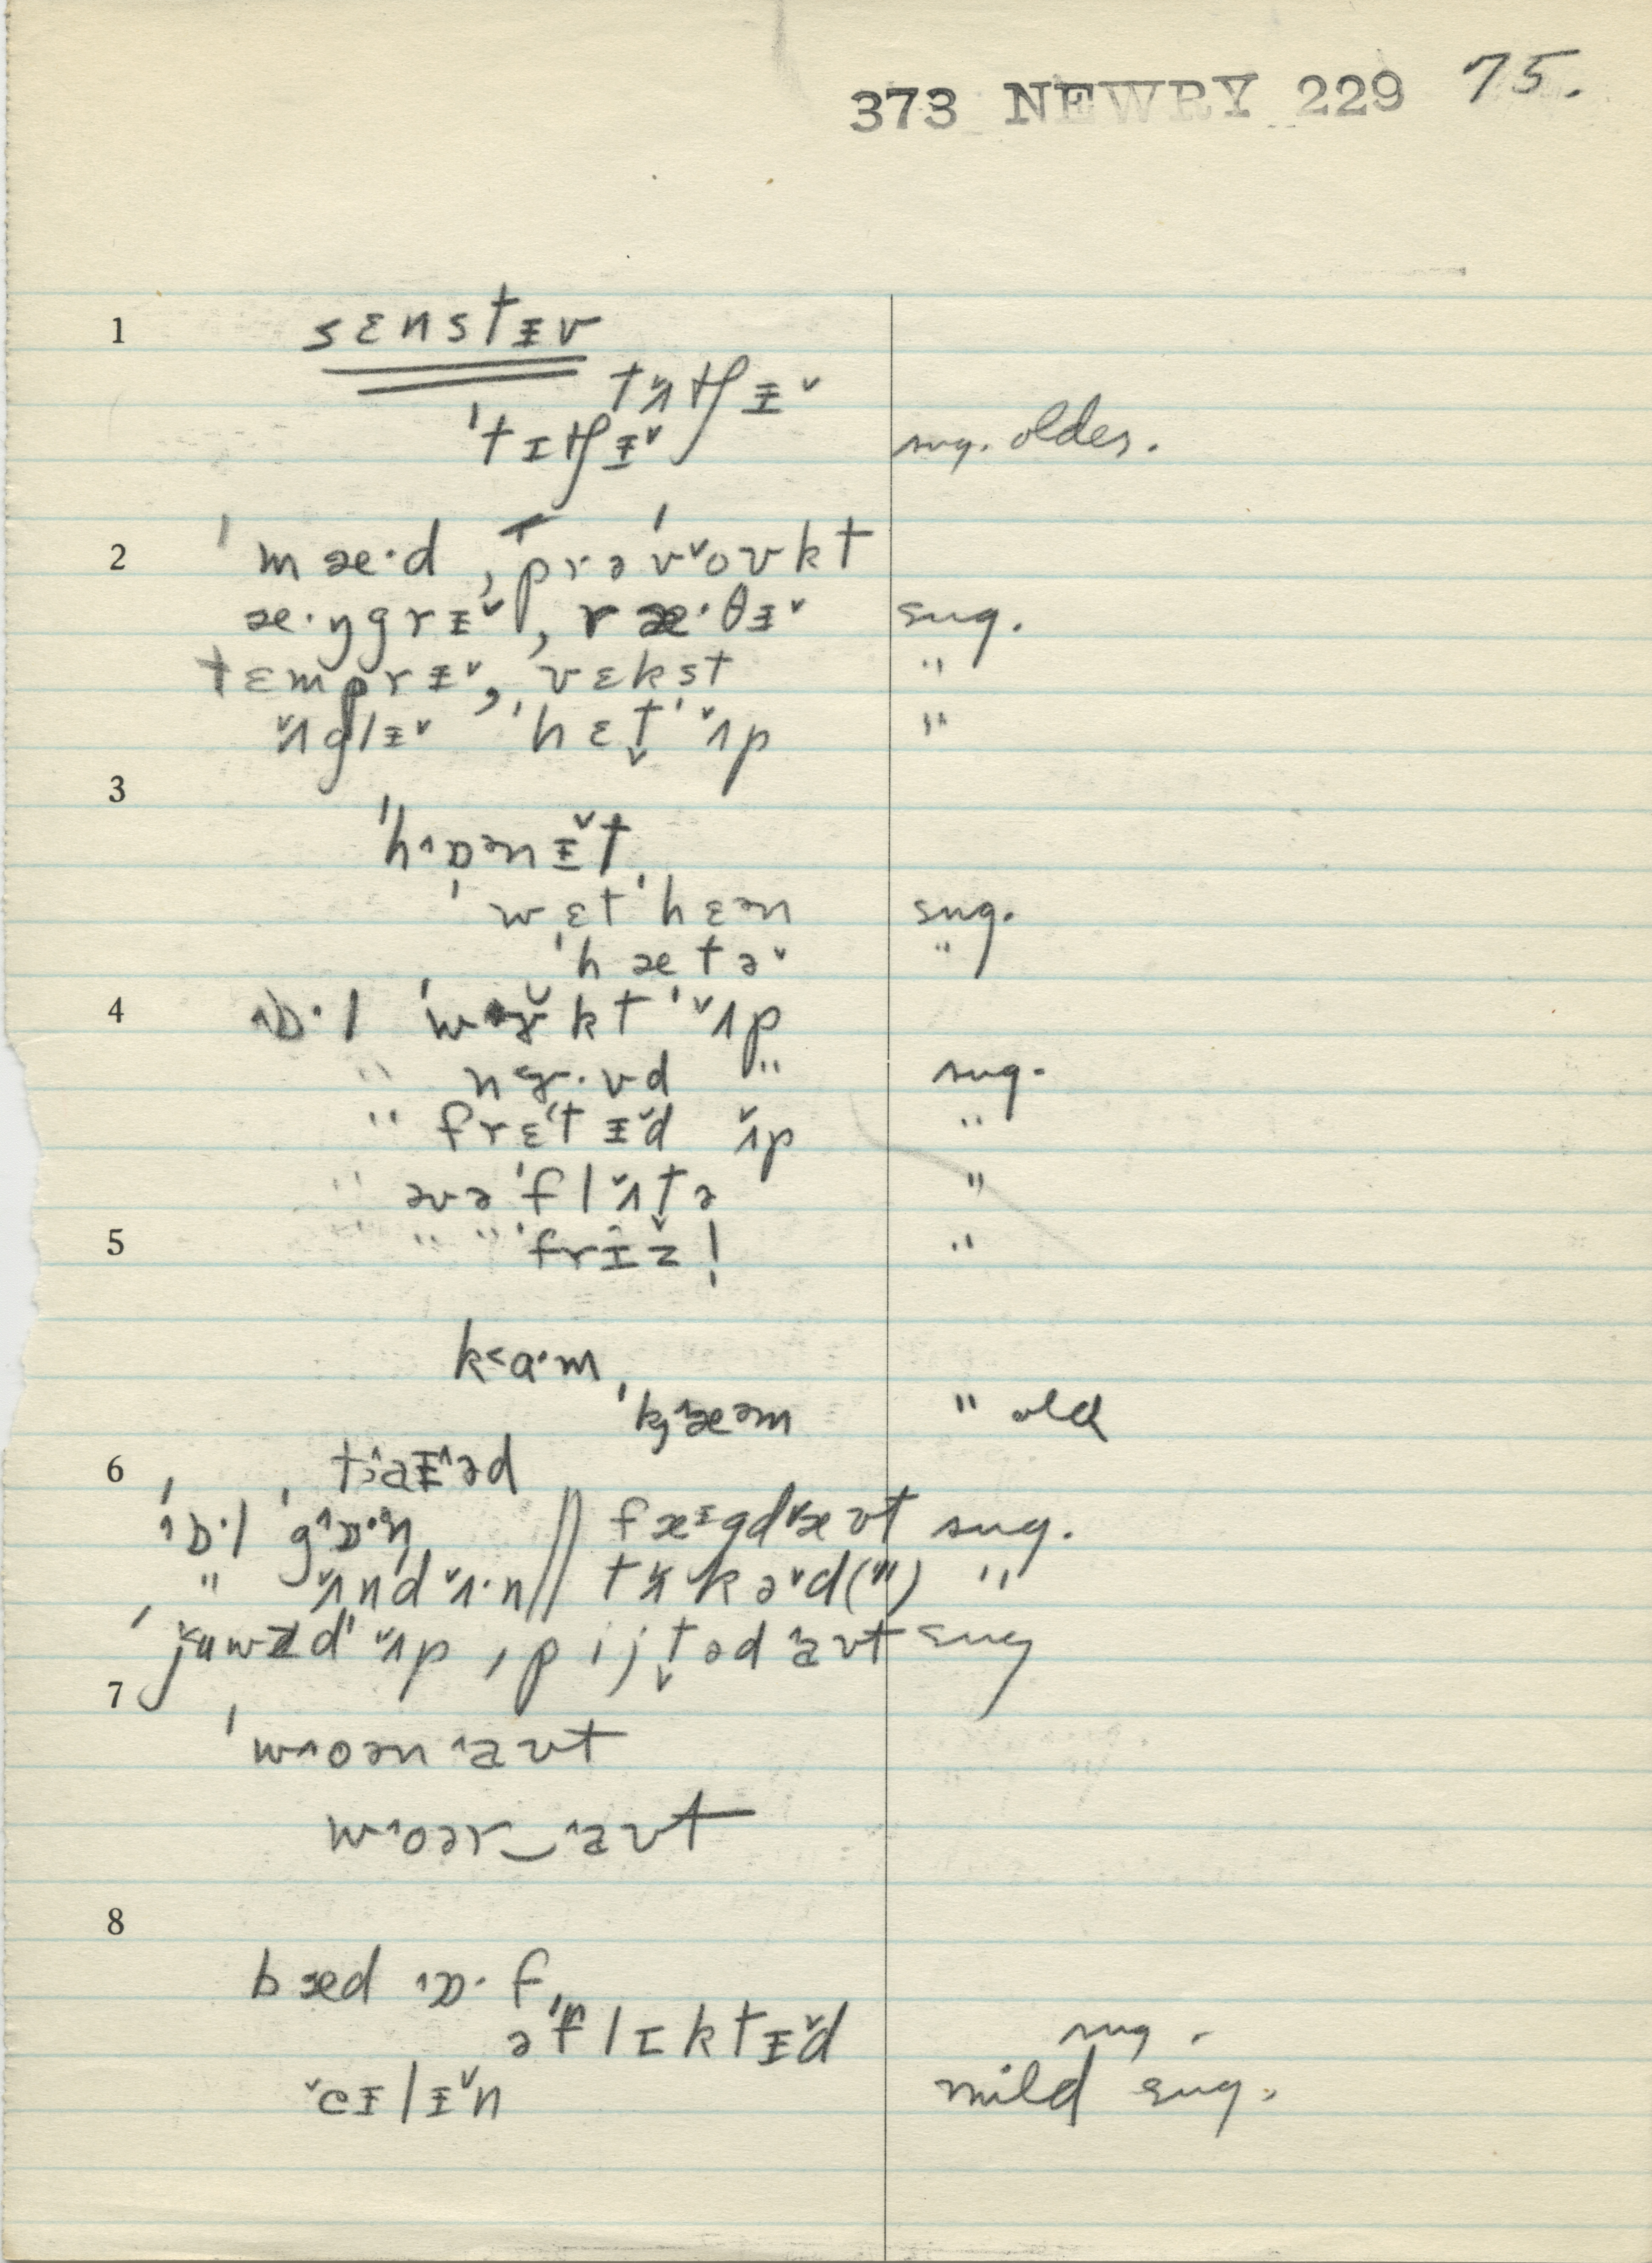 373 NEWRY 229 75.
1 sɛnstɪ̵v
tʌ̌tʃɪ̵ˇ
ˈtɪtʃɪ̵ˇ sug. older.
2 ˈmæ·d, prəˈvˇoʊkt
æ·ŋgrɪ̵ˇ, ræ·θɪ̵ˇ sug.
tɛmprɪ̵ˇ, vɛkst "
ʌ̌glɪ̵ˇ ˈhɛt̬ ˈʌ̌p "
3
ˈh^ɒənɪ̵ˇt
ˈwɛt ˈhɛən sug.
ˈhætəˇ "
4 ^ɒ·l ˈwɝkt ˈˇʌp
" nɝ·vd " sug.
" frɛtɪ̵ˇd ˇʌp "
" əvəˈflˇʌt̬ə "
5 " " " ˈfrɪ^z̬! "
k<a·m
ˈkæ^əm " old
6 taɪ̵^əd
ˈ^ɒ·l ˈg^ɒ·n // fæɪgdˇæʊt sug.
" ˇʌndˇʌ·n // tˇʌkəˇd(") "
ˈjuwzd ˈˇʌp, pijt̬əd ^aʊt sug
7
ˈw^oən ^aʊt
w^oər‿^aʊt
8
bæd ^ɒ·f
əˈflɪktɪ̵ˇd sug.
ˇeɪ̵lɪ̵ˇn mild sug.